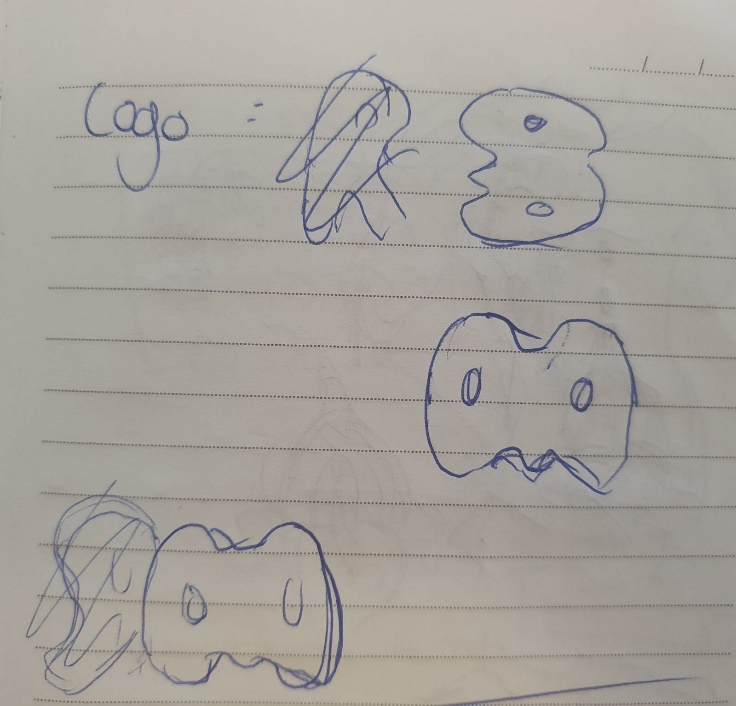 Logo :